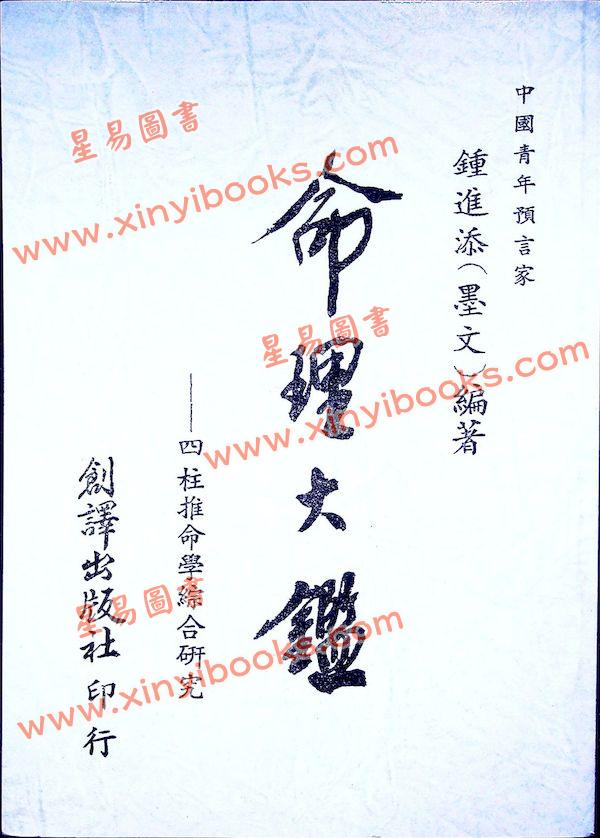 中國青年預言家
鍾進添（墨文）編著
命理大鑑
——四柱推命學綜合研究
創譯出版社印行
星易圖書
www.xinyibooks.com
星易圖書
www.xinyibooks.com
星易圖書
www.xinyibooks.com